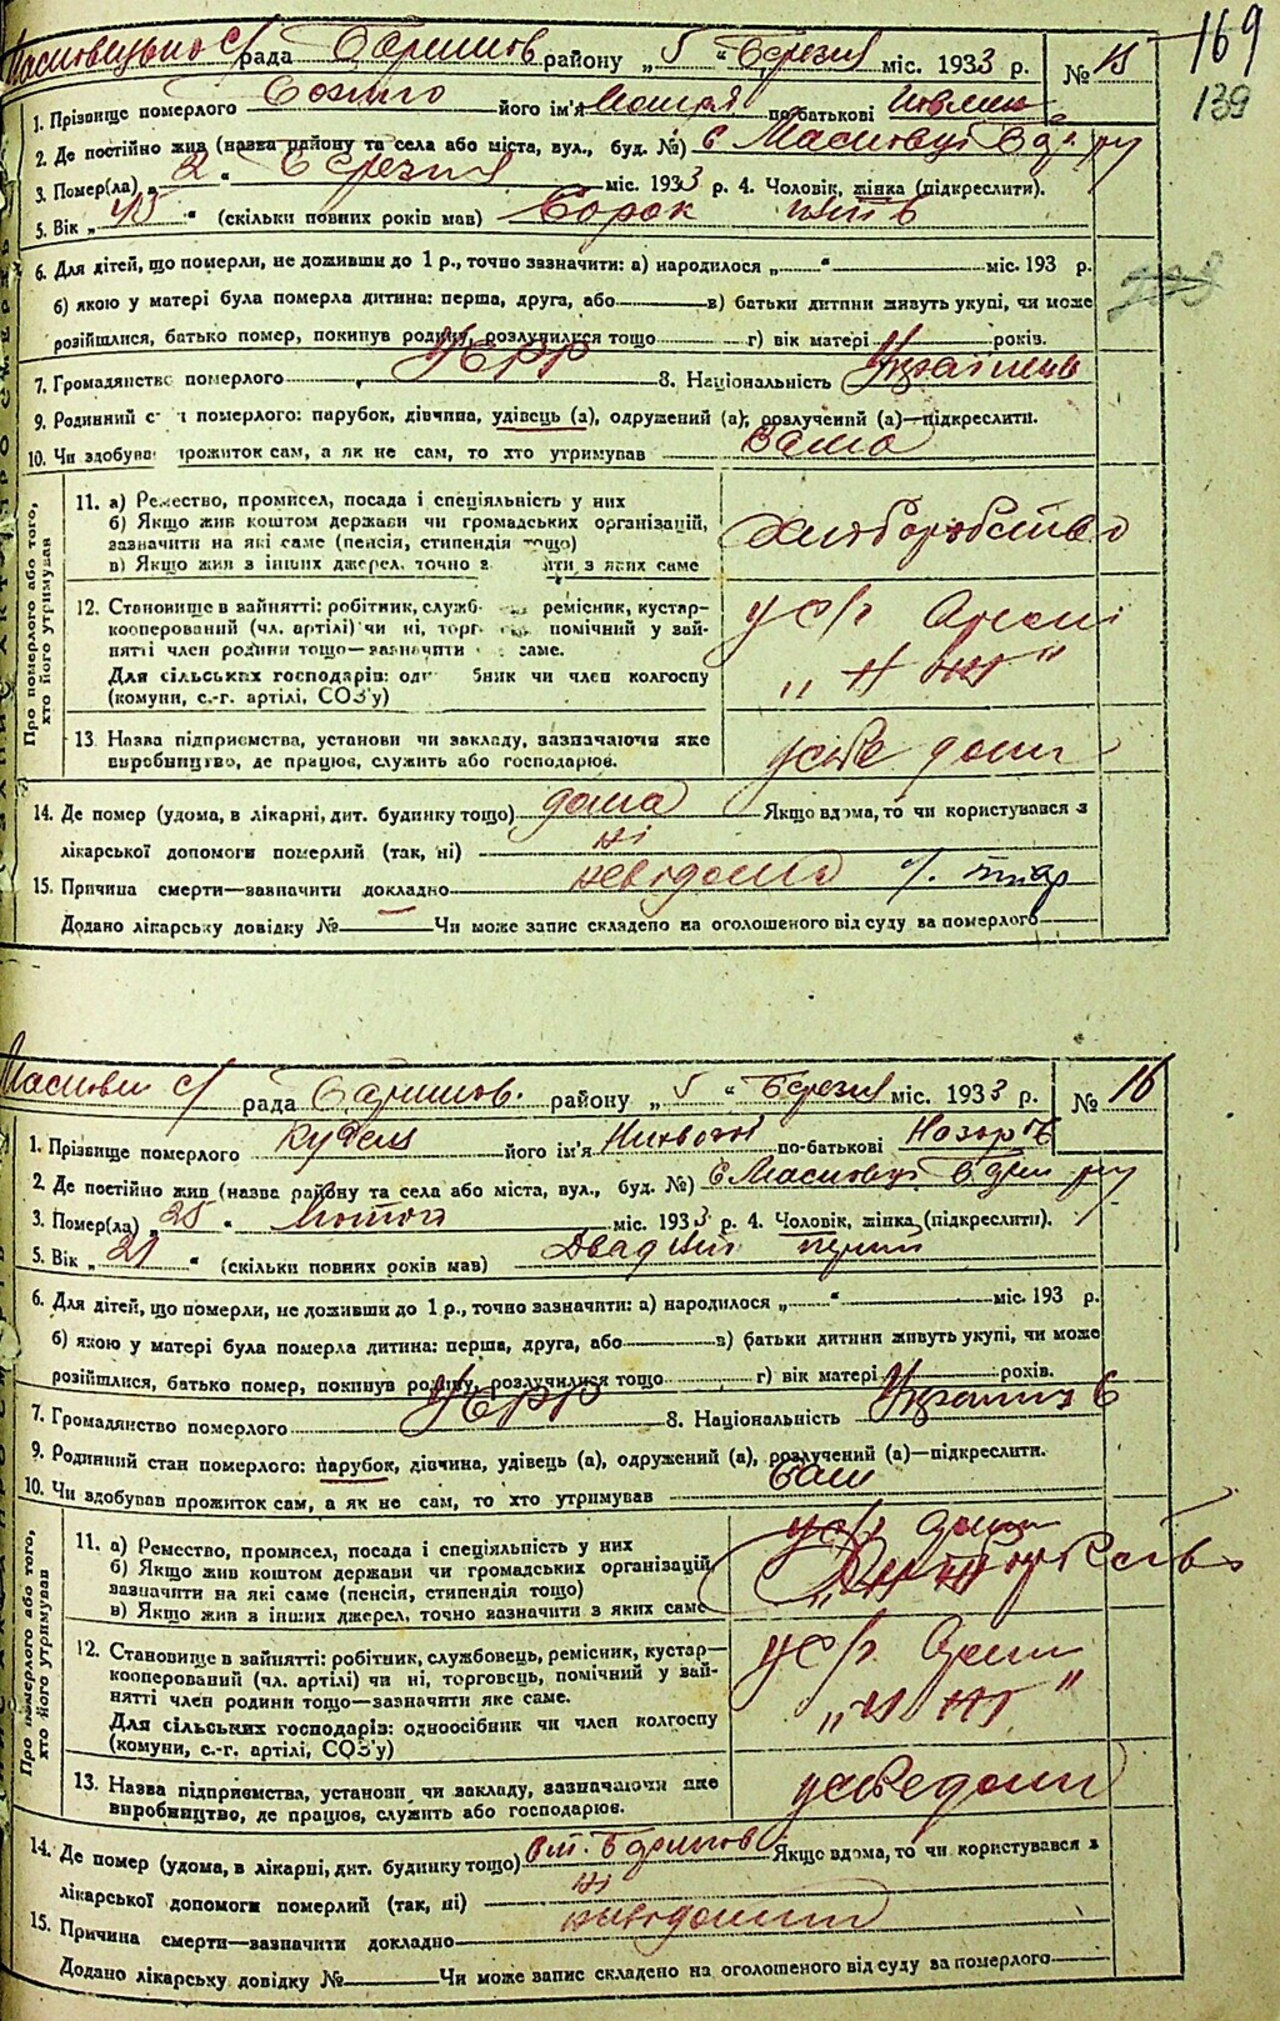 169
139
рада районну „ 5 “ Березня міс. 1933 р. № 15
1. Прізвище померлого його ім'я по-батькові
2. Де постійно жив (назва району та села або міста, вул., буд. №) с Масковці
3. Помер(ла) „ 2 “ Березня міс. 1933 р. 4. Чоловік, жінка (підкреслити).
5. Вік „ 45 “ (скільки повних років мав) Сорок
6. Для дітей, що померли, не доживши до 1 р., точно зазначити: а) народилося „ “ міс. 193 р.
б) якою у матері була померла дитина: перша, друга, або в) батьки дитини живуть укупі, чи може
розійшлися, батько помер, покинув родину, розлучилися тощо г) вік матері років.
7. Громадянство померлого УСРР 8. Національність
9. Родинний с померлого: парубок, дівчина, удівець (а), одружений (а), розлучений (а)—підкреслити.
10. Чи здобував прожиток сам, а як не сам, то хто утримував Сама
Про померлого або того, хто його утримував
11. а) Ремество, промисел, посада і спеціяльність у них
б) Якщо жив коштом держави чи громадських організацій,
зазначити на які саме (пенсія, стипендія тощо)
в) Якщо жив з інших джерел, точно з яких саме
Хлиборобство
12. Становище в зайнятті: робітник, служб ремісник, кустар-
кооперований (чл. артілі) чи ні, торг помічний у зай-
нятті член родини тощо—зазначити саме.
Для сільських господарів: од бник чи член колгоспу
(комуни, с.-г. артілі, СОЗ'у)
у с/г
13 Назва підприємства, установи чи закладу, зазначаючи яке
виробництво, де працює, служить або господарює.
у себе дома
14. Де помер (удома, в лікарні, дит. будинку тощо) дома Якщо вдома, то чи користувався з
лікарської допомоги померлий (так, ні) ні
15. Причина смерти—зазначити докладно невідома
Додано лікарську довідку № Чи може запис складено на оголошеного від суду за померлого
с/ рада районну „ 5 “ Березня міс. 1933 р. № 16
1. Прізвище померлого його ім'я по-батькові
2. Де постійно жив (назва району та села або міста, вул., буд. №) с Масковці
3. Помер(ла) „ 25 “ Лютого міс. 1933 р. 4. Чоловік, жінка (підкреслити).
5. Вік „ 21 “ (скільки повних років мав)
6. Для дітей, що померли, не доживши до 1 р., точно зазначити: а) народилося „ “ міс. 193 р.
б) якою у матері була померла дитина: перша, друга, або в) батьки дитини живуть укупі, чи може
розійшлися, батько помер, покинув родину, розлучилися тощо г) вік матері років.
7. Громадянство померлого УСРР 8. Національність
9. Родинний стан померлого: парубок, дівчина, удівець (а), одружений (а), розлучений (а)—підкреслити.
10. Чи здобував прожиток сам, а як не сам, то хто утримував Сам
Про померлого або того, хто його утримував
11. а) Ремество, промисел, посада і спеціяльність у них
б) Якщо жив коштом держави чи громадських організацій,
зазначити на які саме (пенсія, стипендія тощо)
в) Якщо жив з інших джерел, точно зазначити з яких саме
12. Становище в зайнятті: робітник, службовець, ремісник, кустар—
кооперований (чл. артілі) чи ні, торговець, помічний у зай-
нятті член родини тощо—зазначити яке саме.
Для сільських господарів: одноосібник чи член колгоспу
(комуни, с.-г. артілі, СОЗ'у)
у с/г
13. Назва підприємства, установи чи закладу, зазначаючи яке
виробництво, де працює, служить або господарює.
у себе дома
14. Де помер (удома, в лікарні, дит. будинку тощо) Якщо вдома, то чи користувався з
лікарської допомоги померлий (так, ні) ні
15. Причина смерти—зазначити докладно
Додано лікарську довідку № Чи може запис складено на оголошеного від суду за померлого